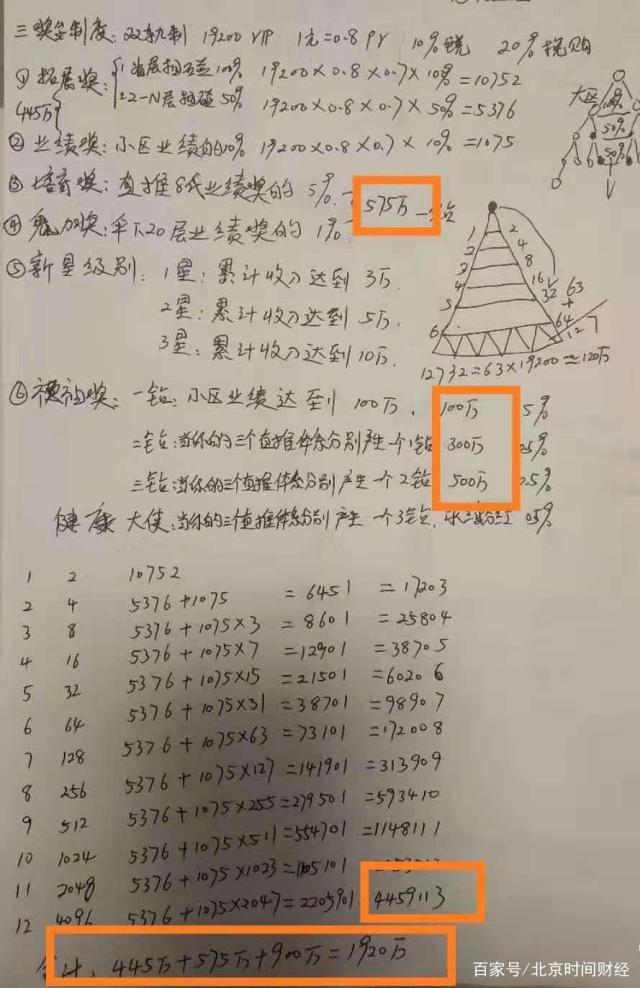 三奖金制度: 双轨制 19200 VIP 1元=0.8 PV 10%税 20%
①拓展奖: 1首层相互碰100% 19200×0.8×0.7×10%=10752
445万 2 2-N层相碰50% 19200×0.8×0.7×50%=5376
大区
100%
50%
50%
②业绩奖:小区业绩的10% 19200×0.8×0.7×10%=1075
③培育奖:直推8代业绩奖的5%.
575万 一钻
④魅力奖:伞下20层业绩奖的1%
⑤新星级别: 1星:累计收入达到3万.
2星:累计收入达到5万.
3星:累计收入达到10万.
1 2
2 4
3 8
4 16
5 32
6 64
63
+
127
12732=63×19200≈120万
⑥ 一钻:小区业绩达到100万. 100万 5%
二钻:当你的三个直推体系分别产生一个1钻 300万 0.5%
三钻:当你的三个直推体系分别产生一个2钻 500万 0.5%
健康大使:当你的三个直推体系分别产生一个3钻, 0.5%
1 2 10752
2 4 5376+1075 =6451 =17203
3 8 5376+1075×3 =8601 =25804
4 16 5376+1075×7 =12901 =38705
5 32 5376+1075×15 =21501 =60206
6 64 5376+1075×31 =38701 =98907
7 128 5376+1075×63 =73101 =172008
8 256 5376+1075×127 =141901 =313909
9 512 5376+1075×255 =279501 =593410
10 1024 5376+1075×511 =554701 =1148111
11 2048 5376+1075×1023 =1105101
12 4096 5376+1075×2047 =2205901 4459113
合计: 445万+575万+900万=1920万
百家号/北京时间财经